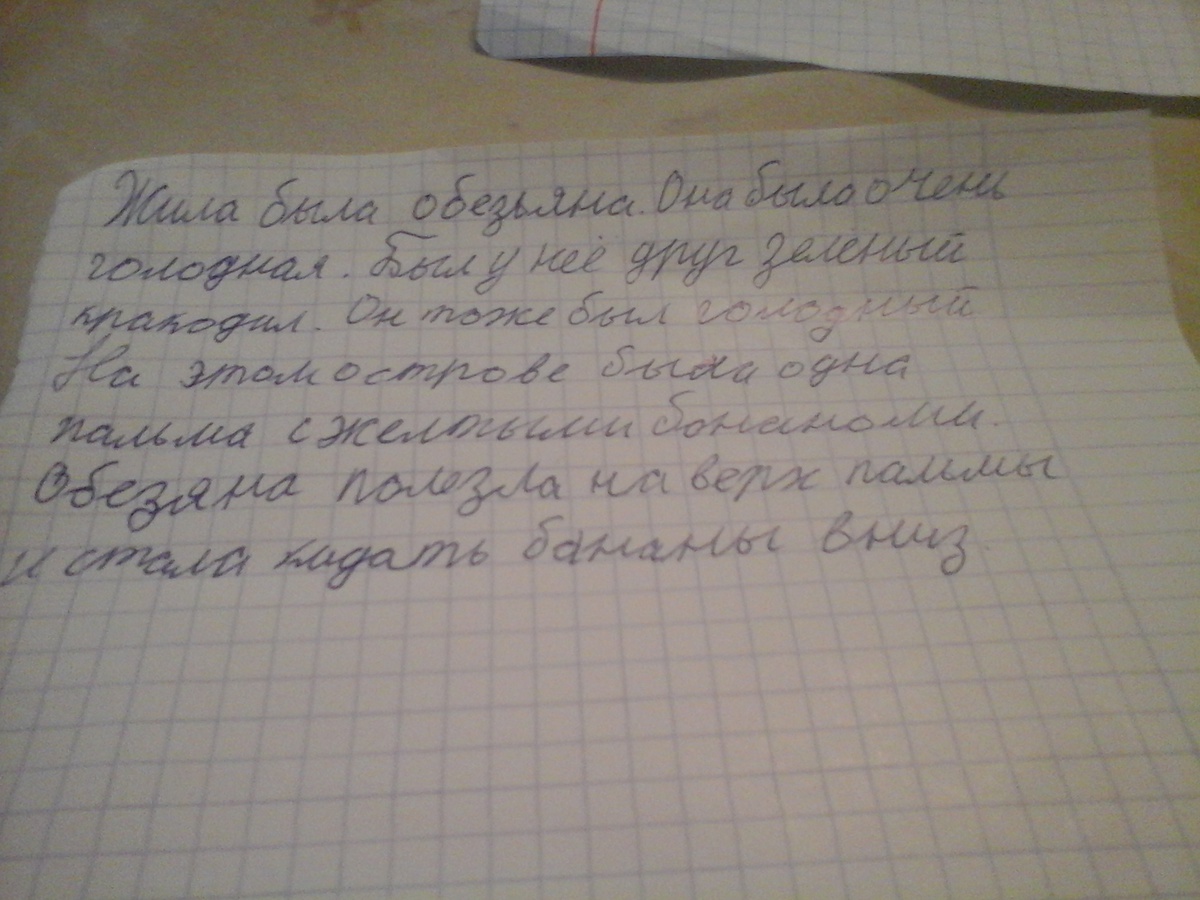 Жила была обезьяна. Она была очень
голодная. Был у неё друг зеленый
кракодил. Он тоже был голодный
На этом острове была одна
пальма с желтыми бонаноми.
Обезяна полезла на верх палмы
и стала кидать бананы вниз.